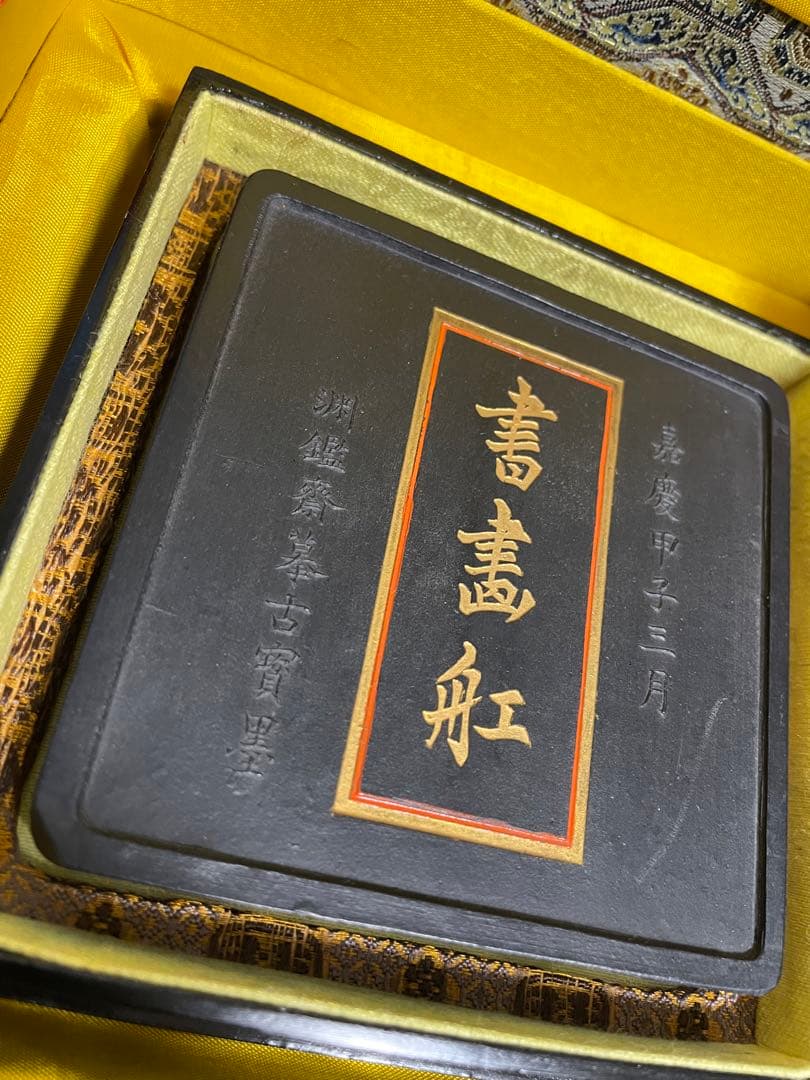 嘉慶甲子三月
書畵舡
渊鑑齋摹古寶墨